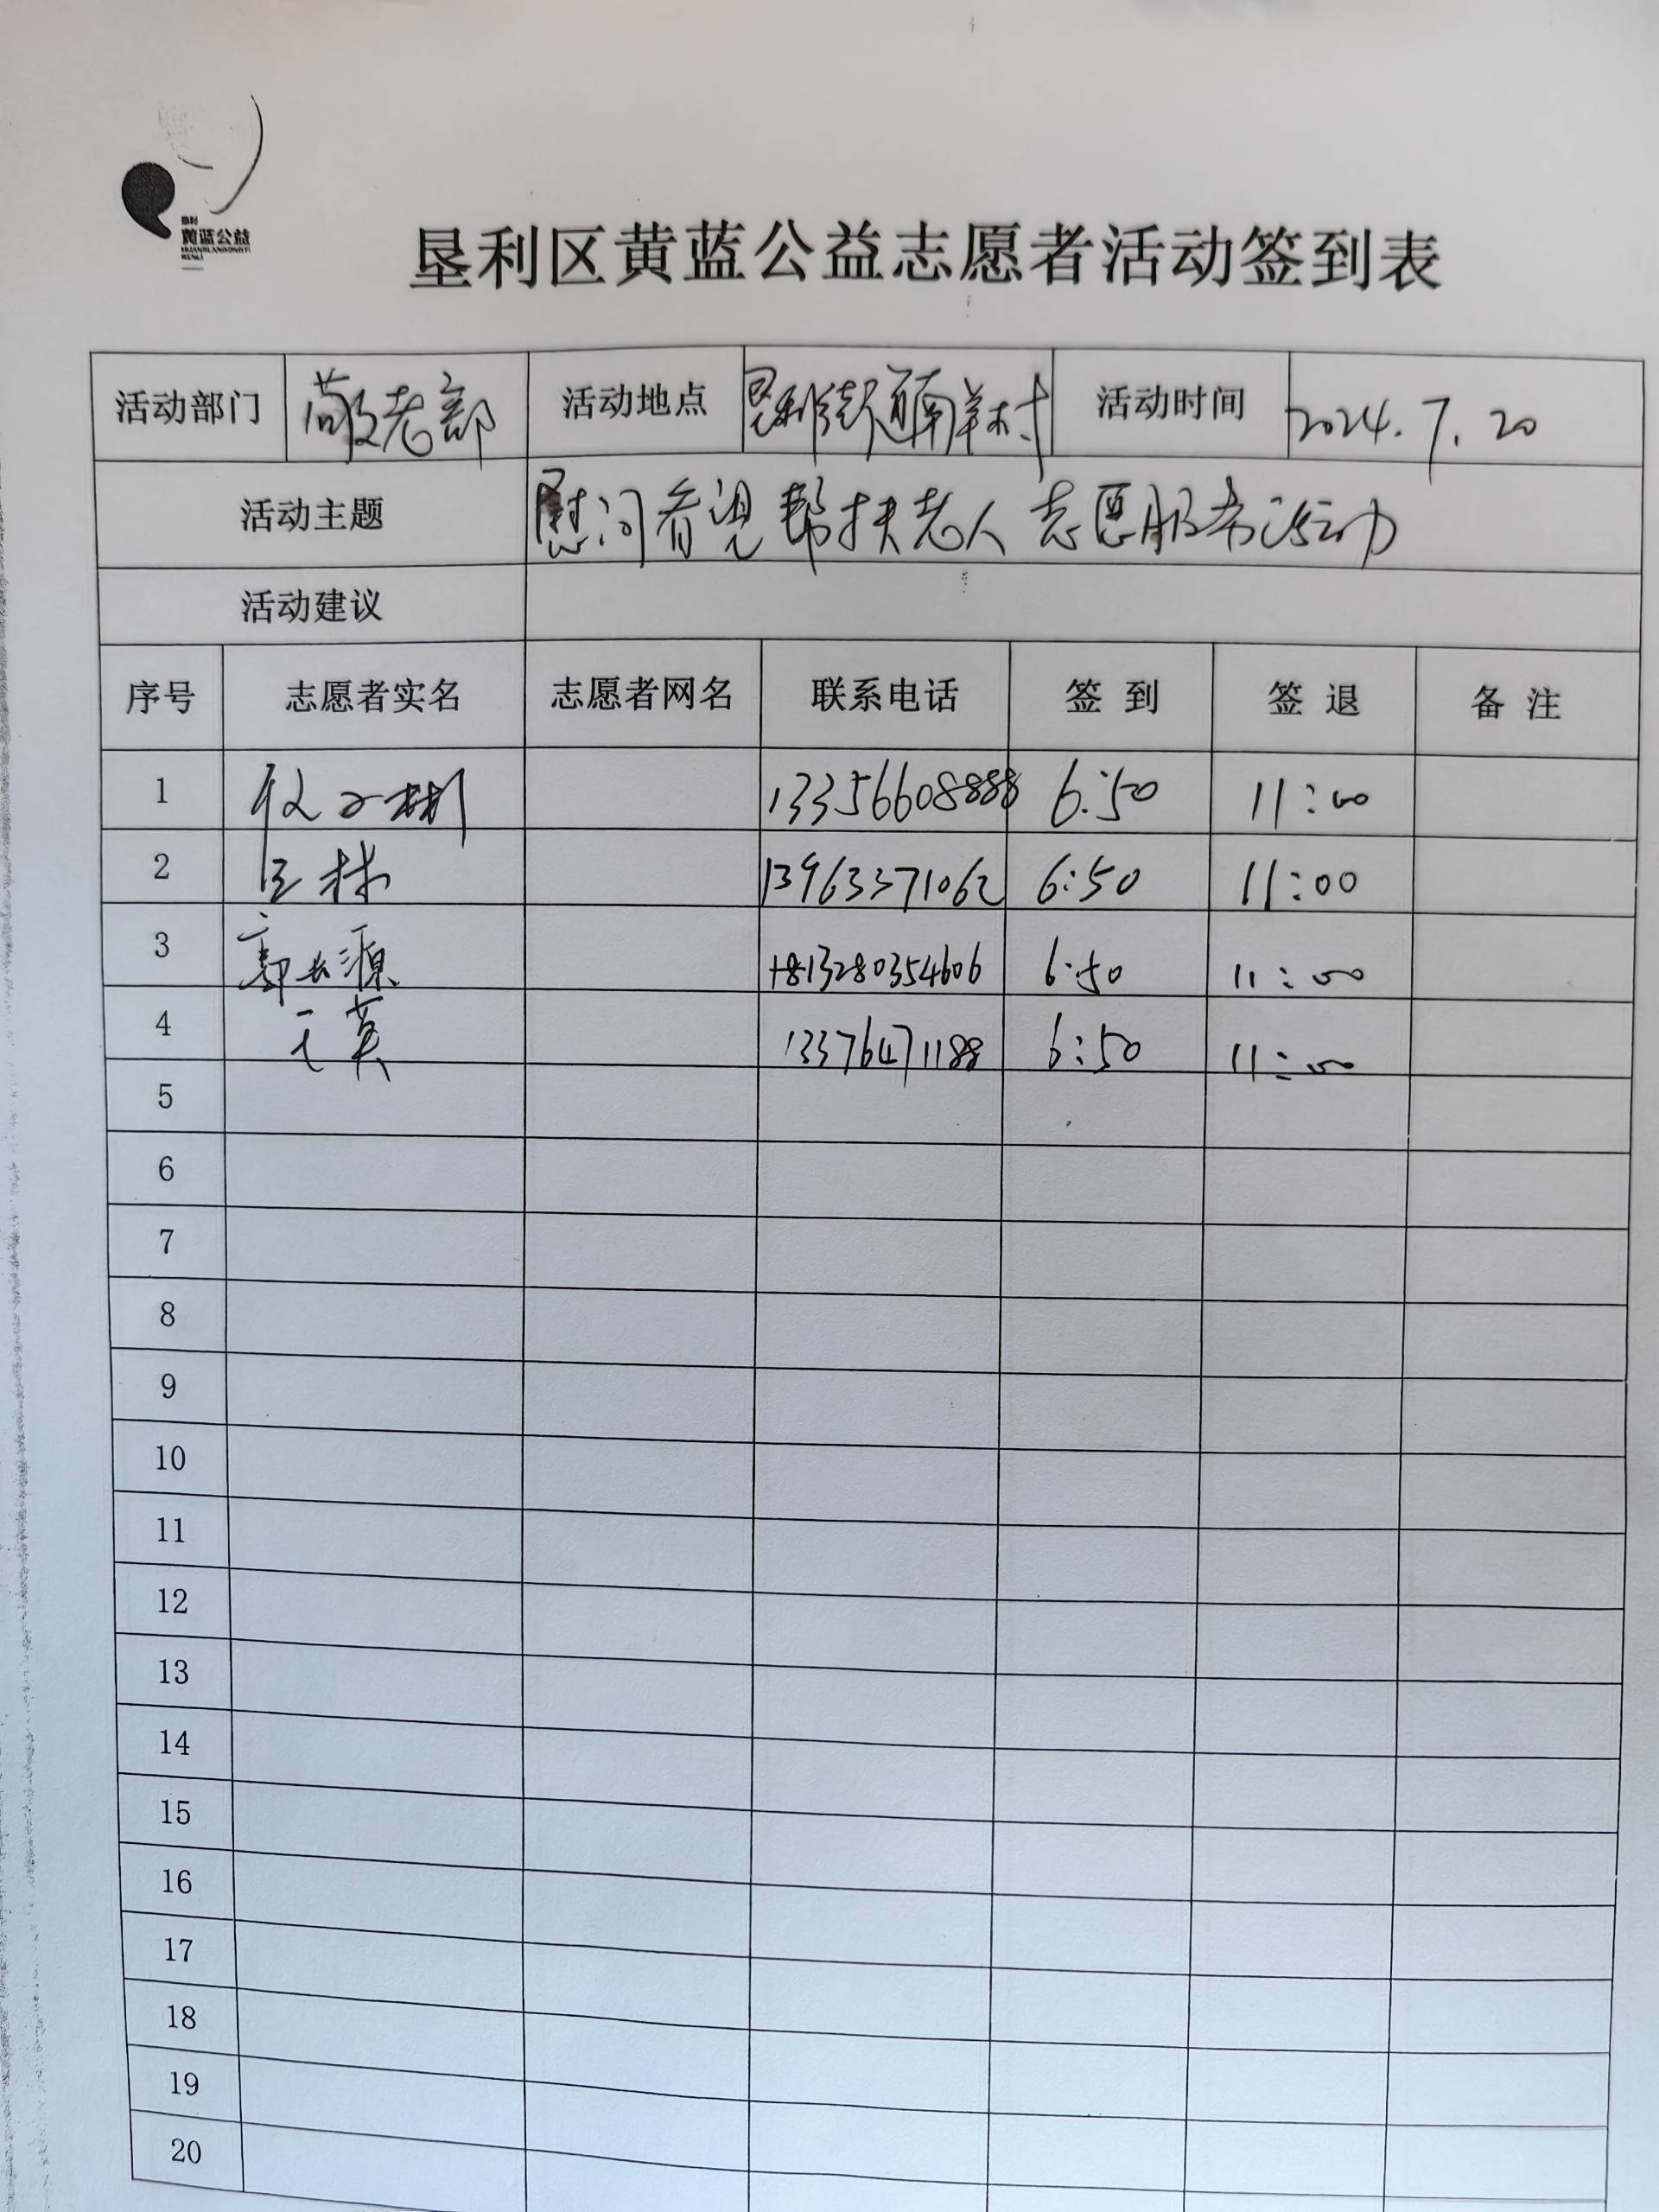 垦利
黄蓝公益
垦利区黄蓝公益志愿者活动签到表
活动部门 敬老部 活动地点 垦利街道南羊村 活动时间 2024.7.20
活动主题 慰问看望帮扶老人志愿服务活动
活动建议
序号 志愿者实名 志愿者网名 联系电话 签到 签退 备注
1 13356608888 6:50 11:00
2 王林 13963371062 6:50 11:00
3 郭长源 13280354606 6:50 11:00
4 王英 13376471188 6:50 11:00
5
6
7
8
9
10
11
12
13
14
15
16
17
18
19
20